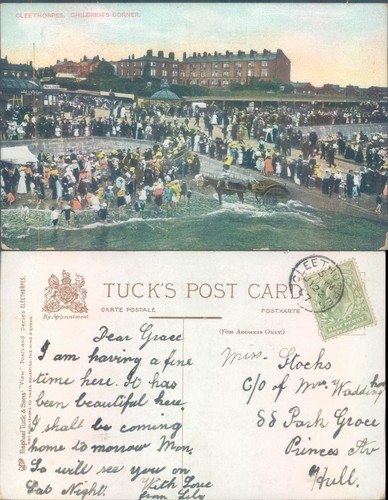 CLEETHORPES. CHILDREN'S CORNER.
TUCK'S POST CARD
CARTE POSTALE
POSTKARTE
By Appointment.
(FOR ADDRESS ONLY)
Raphael Tuck & Sons' "View" Postcard Series CLEETHORPES.
CLEET
Dear Grace
I am having a fine
time here. It has
been beautiful here
I shall be coming
home to morrow Mon.
So will see you on
Sat Night. With Love
from Lily
Miss. Stocks
C/o of Mrs Waddingham
88 Park Grove
Princes Av
Hull.